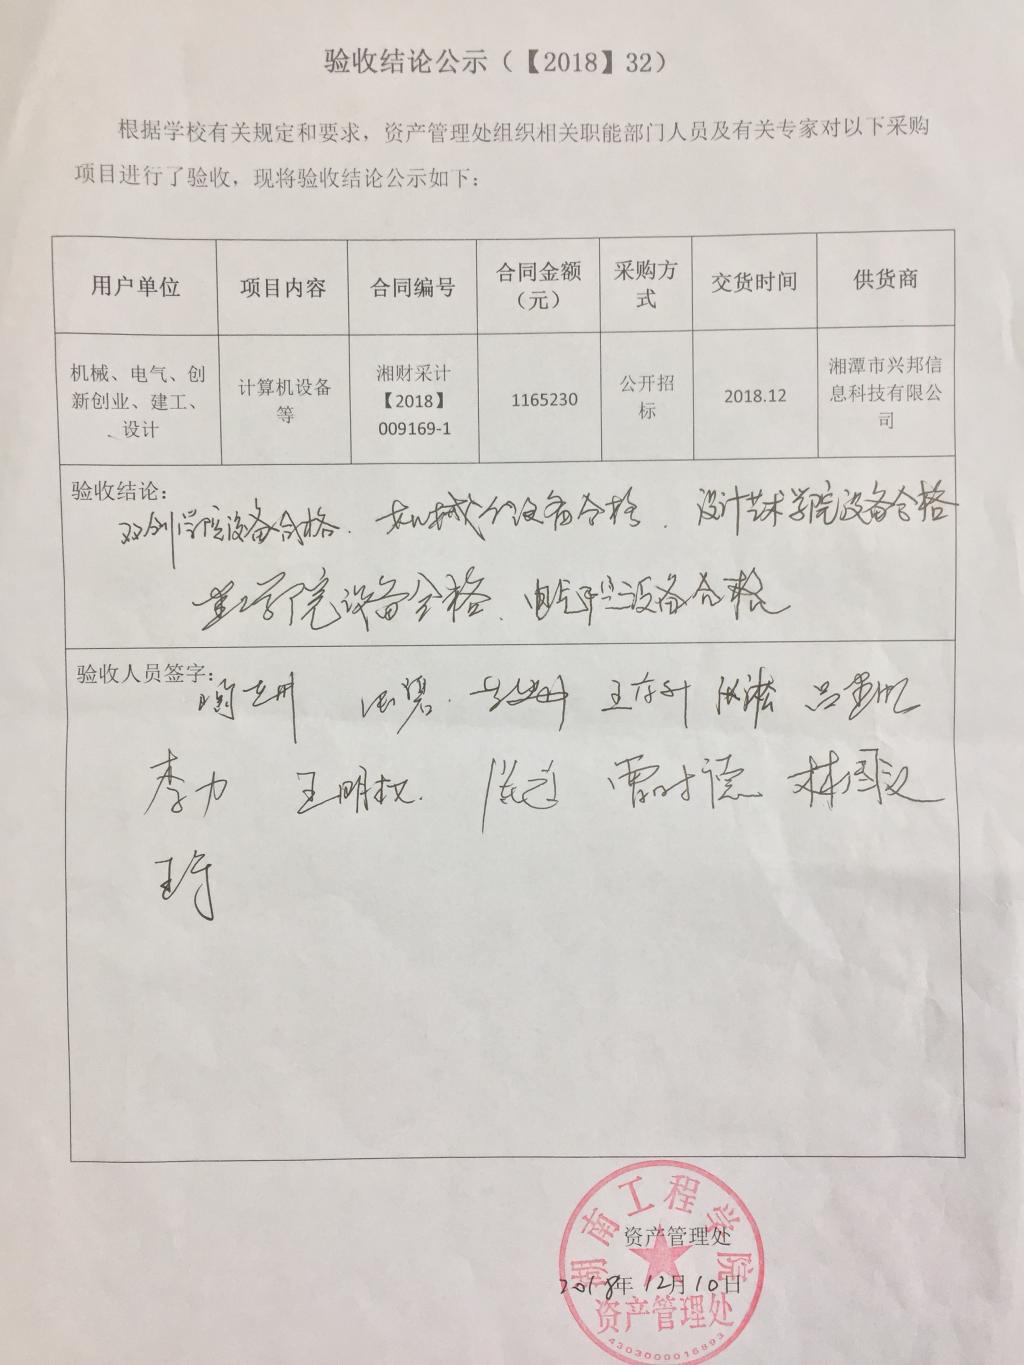 验收结论公示（【2018】32）
根据学校有关规定和要求，资产管理处组织相关职能部门人员及有关专家对以下采购
项目进行了验收，现将验收结论公示如下：
用户单位
项目内容
合同编号
合同金额
（元）
采购方
式
交货时间
供货商
机械、电气、创
新创业、建工、
、设计
计算机设备
等
湘财采计
【2018】
009169-1
1165230
公开招
标
2018.12
湘潭市兴邦信
息科技有限公
司
验收结论：
双创学院设备合格. 机械 设备合格. 设计艺术学院设备合格
建工学院设备合格. 电气学院设备合格
验收人员签字：
王存升
李力 王明权. 雷时德
湖南工程学院
资产管理处
2018年12月10日
资产管理处
4303000016893